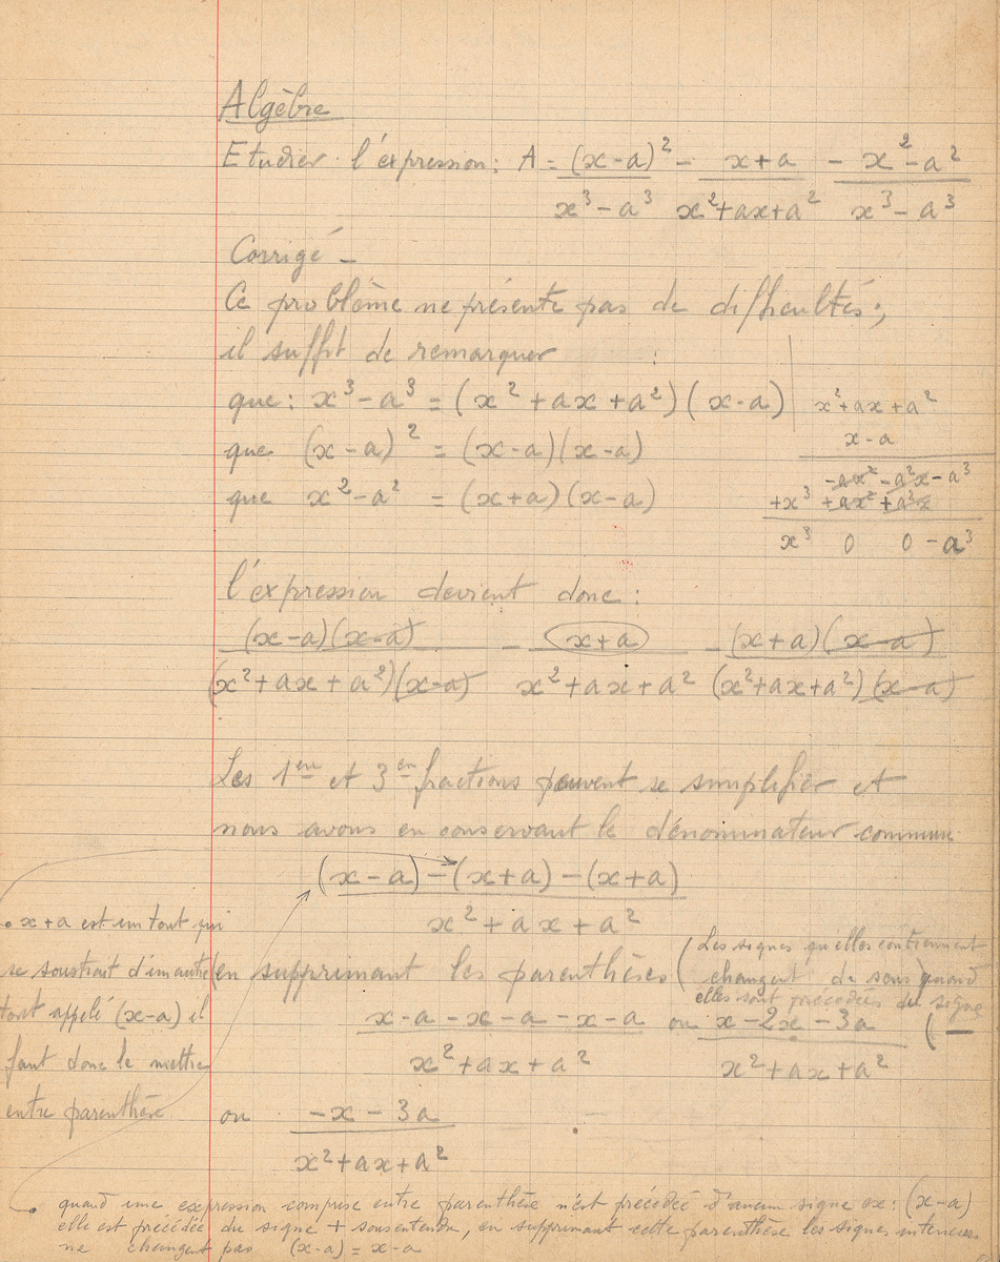 Algèbre
Etudier l'expression: A = (x-a)²/(x³-a³) - (x+a)/(x²+ax+a²) - (x²-a²)/(x³-a³)
Corrigé -
Ce problème ne présente pas de difficultés;
il suffit de remarquer
que: x³-a³ = (x²+ax+a²)(x-a)
que (x-a)² = (x-a)(x-a)
que x²-a² = (x+a)(x-a)
x²+ax+a²
x-a
-ax²-a²x-a³
+x³+ax²+a²x
x³ 0 0 -a³
l'expression devient donc:
(x-a)(x-a)/(x²+ax+a²)(x-a) - (x+a)/(x²+ax+a²) - (x+a)(x-a)/(x²+ax+a²)(x-a)
Les 1ère et 3en fractions peuvent se simplifier et
nous avons en conservant le dénominateur commun
((x-a)-(x+a)-(x+a))/(x²+ax+a²)
• x+a est un tout qui
se soustrait d'un autre
tout appelé (x-a) il
faut donc le mettre
entre parenthèse
en supprimant les parenthèses
(Les signes qu'elles contiennent
changent de sens quand
elles sont précédées du signe
(-
(x-a-x-a-x-a)/(x²+ax+a²) ou (x-2x-3a)/(x²+ax+a²)
ou (-x-3a)/(x²+ax+a²)
• quand une expression comprise entre parenthèse n'est précédée d'aucun signe ex: (x-a)
elle est précédée du signe + sousentendu, en supprimant cette parenthèse les signes intérieurs
ne changent pas (x-a) = x-a